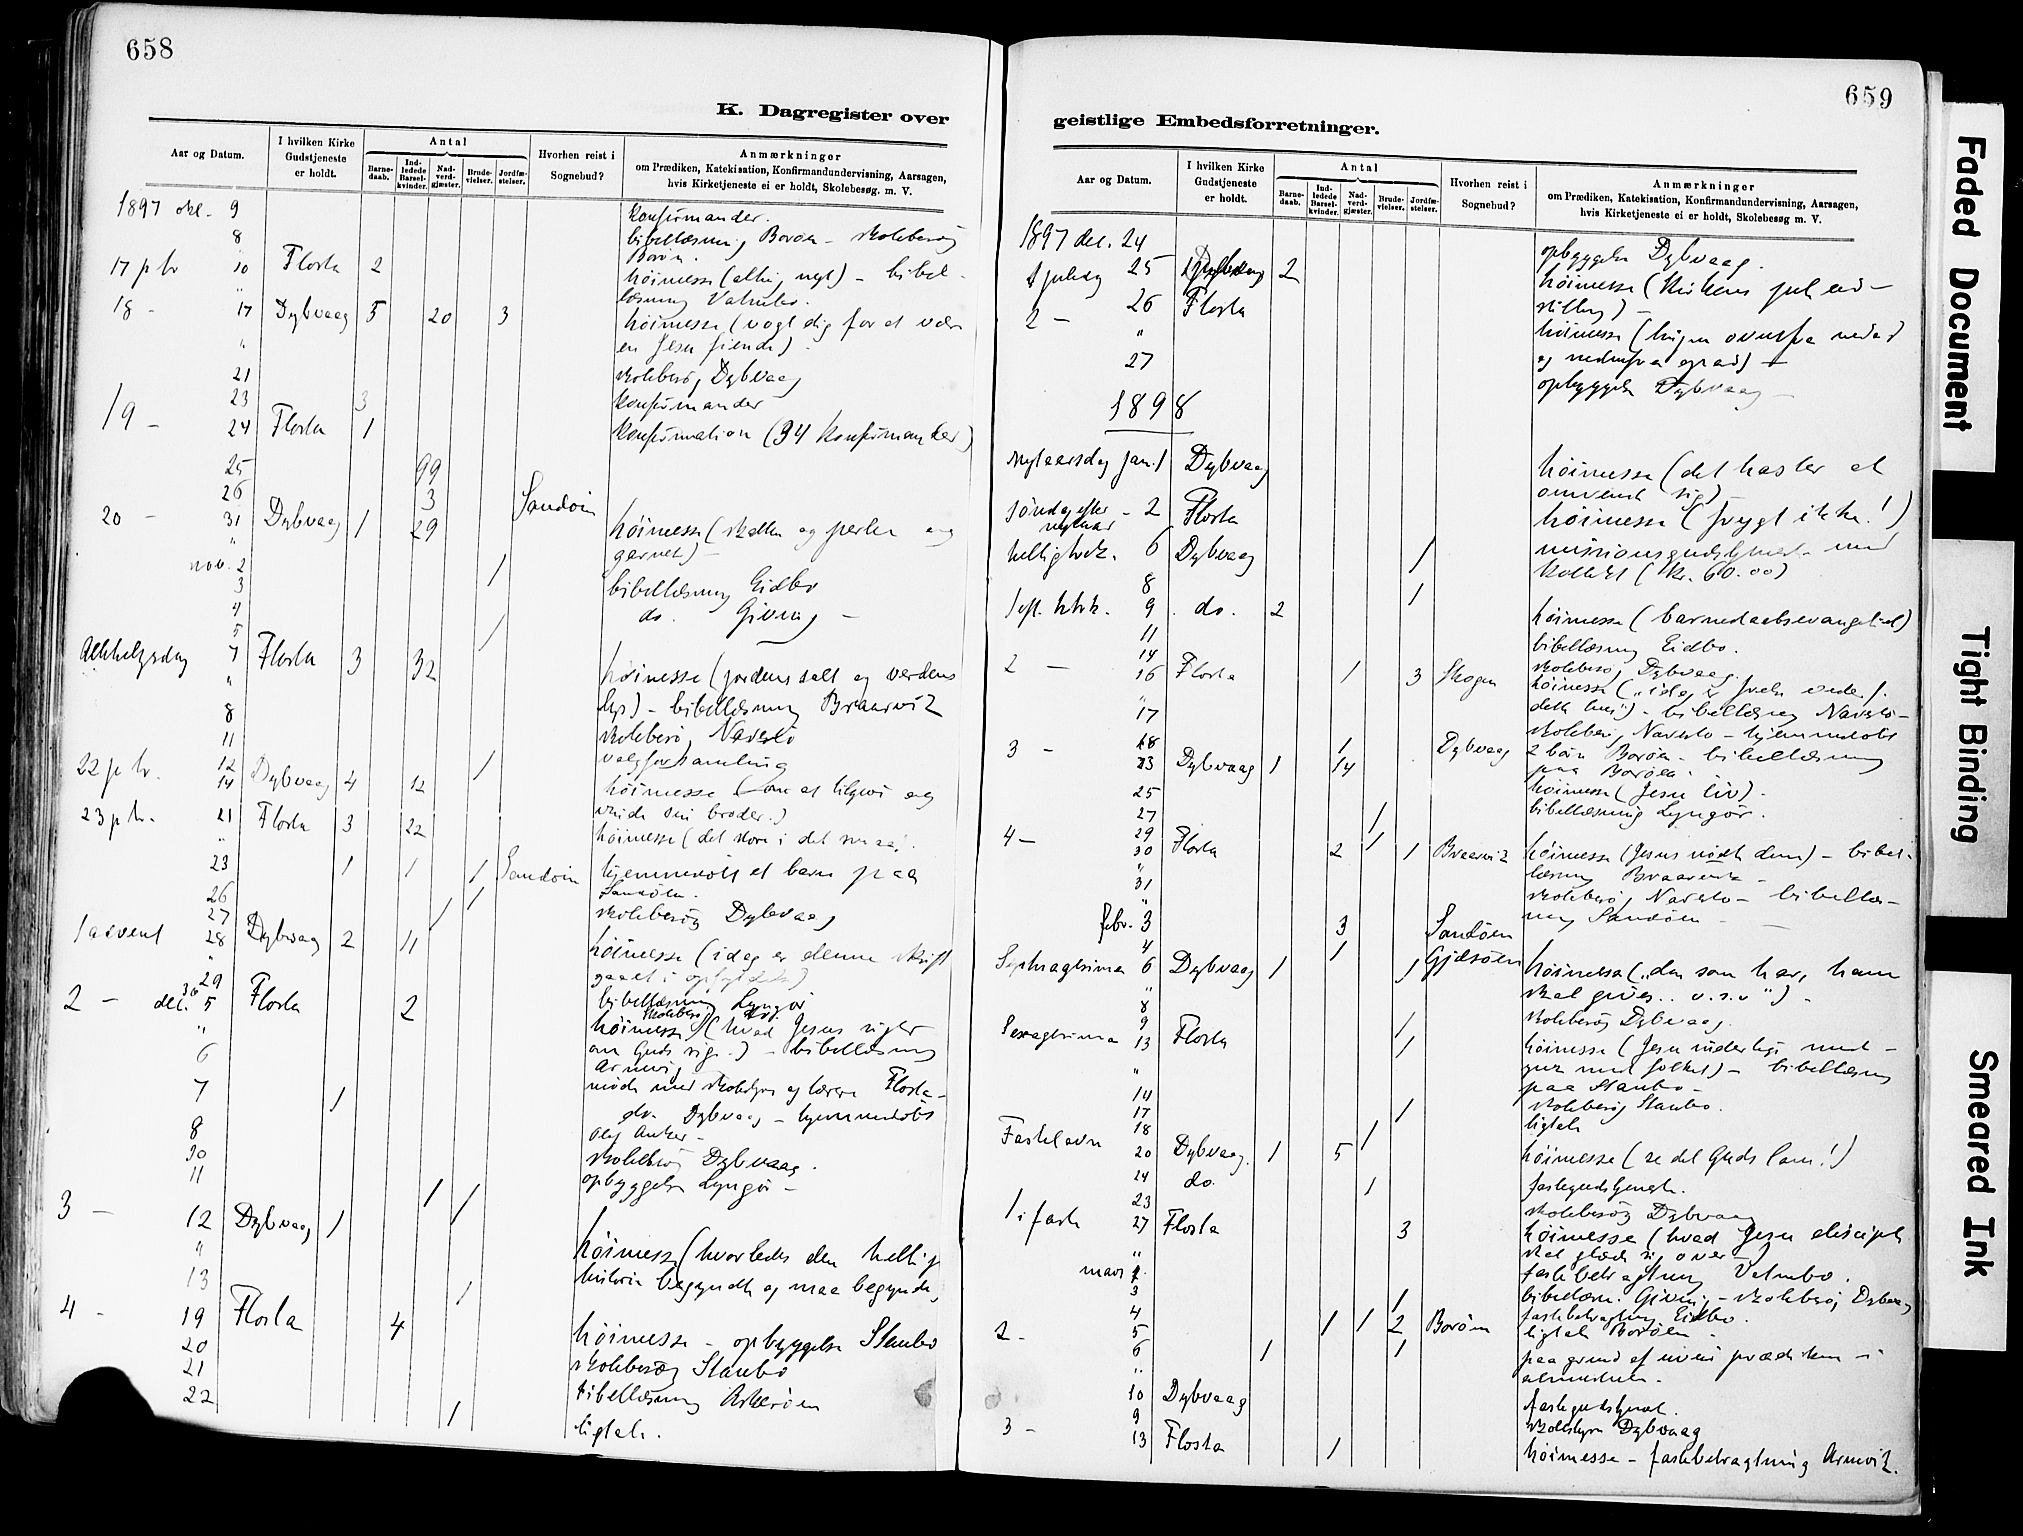 658
K. Dagregister over
Aar og Datum.
I hvilken Kirke Gudstjeneste er holdt.
Antal
Barnedaab.
Indledede Barselkvinder.
Nadverdgjæster.
Brudevielser.
Jordfæstelser.
Hvorhen reist i Sognebud?
Anmærkninger
om Prædiken, Katekisation, Konfirmandundervisning, Aarsagen,
hvis Kirketjeneste ei er holdt, Skolebesøg. m. V.
1897 okt. 9 konfirmander.
8 bibellæsning Borøen - skolebesøg
Borøn.
17 p tr 10 Flosta 2 høimesse (alting nyt) - bibel-
læsning Vatnebo.
18 - 17 Dybvaag 5 20 3 høimesse (vogt dig for at være
en Jesu fiende)
21 skolebesøg Dybvaag
23 3 konfirmander
19 - 24 Flosta 1 konfirmation (34 konfirmander)
25 99
26 3 Sandøen
20 - 31 Dybvaag 1 29 høimesse (skatten og perlen og
garnet) -
nov. 2 1 bibellæsning Eidbo
3 do. Giving -
4
5 1
Allehelgensdag 7 Flosta 3 32 høimesse (jordens salt og verdens
lys) - bibellæsning Braarvik
8 skolebesøg Narestø
11 valgforsamling
12 1
22 p tr. 14 Dybvaag 4 12 høimesse (om at tilgive og
vinde sin broder.)
23 p tr. 21 Flosta 3 22 høimesse (det store i det smaa).
23 1 1 1 Sandøen hjemmedøbt et barn paa
Sandøen.
26 1
27 1 skolebesøg Dybvaag
1 advent 28 Dybvaag 2 11 høimesse (idag er denne skrift
gaaet i opfyldelse)
29 bibellæsning Lyngør
30 skolebesøg
2 - dec. 5 Flosta 2 høimesse (hvad Jesus siger
om Guds rige.) - bibellæsning
Arnevig
6 møde med skolestyre og lærere Flosta -
7 1 do. Dybvaag - hjemmedøbt
8
10 skolebesøg Dybvaag.
11 1 1 opbyggelse Lyngør -
3 - 12 Dybvaag 1 1 høimesse (hvorledes den hellige
historie begyndte og maa begynde,
13 1
4 - 19 Flosta 4 høimesse - opbyggelse Staubø
20 skolebesøg Staubø
21 bibellæsning Askerøen
22 1 ligtale.
659
geistlige Embedsforretninger.
Aar og Datum.
I hvilken Kirke Gudstjeneste er holdt.
Antal
Barnedaab.
Indledede Barselkvinder.
Nadverdgjæster.
Brudevielser.
Jordfæstelser.
Hvorhen reist i Sognebud?
Anmærkninger
om Prædiken, Katekisation, Konfirmandundervisning, Aarsagen,
hvis Kirketjeneste ei er holdt, Skolebesøg m. V.
1897 dec. 24 opbyggelse Dybvaag.
1 juledag 25 Dybvaag 2 høimesse (Kirkens jule ud-
stilling) -
2 - 26 Flosta høimesse (krigen ovenfra nedad
og nedenfra opad) -
27 opbyggelse Dybvaag -
1898
nytaarsdag jan. 1 Dybvaag høimesse (det haster at
omvende sig)
søndag efter nytaar - 2 Flosta høimesse (frygt ikke!)
helligtrek. 6 Dybvaag 1 missionsgudstjeneste med
kollekt (kr. 60.00)
8 1
1 eft. htrk. 9 do. 2 høimesse (barnedaabsevangeliet)
11 bibellæsning Eidbo.
14 skolebesøg Dybvaag.
2 - 16 Flosta 1 3 Skogen høimesse ("idag er frelse vederf.
dette hus") - bibellæsning Narestø -
17 skolebesøg Narestø - hjemmedøbt
18 1 Dybvaag 2 børn Borøen - bibellæsning
paa Borøen.
3 - 23 Dybvaag 1 14 høimesse (Jesu liv).
25 bibellæsning Lyngør.
27 1
29 1
4 - 30 Flosta 2 1 Braarvik høimesse (Jesus nødte dem) - bibel-
læsning Braarvik -
31 skolebesøg Narestø - bibellæs-
ning Sandøen -
febr. 3 3 Sandøen
4 1 Gjesøen
Septuagesima 6 Dybvaag 1 1 høimesse ("den som har, ham
skal gives .. o.s.v") -
8 skolebesøg Dybvaag.
9 1
Sexagesima 13 Flosta 1 høimesse (Jesu inderlige med-
ynk med folket) - bibellæsning
paa Staubø -
14 skolebesøg Staubø.
17 1 ligtale
18 1
Fastelavn 20 Dybvaag. 1 5 høimesse (se det Guds lam!)
24 do. 1 fastegudstjeneste.
23 skolebesøg Dybvaag
1 i faste 27 Flosta 3 høimesse (hvad Jesu disciple
skal glæde sig over -)
fastebetragtning Vatnebo.
mars 2 bibellæsn. Giving - skolebesøg Dybvaag
3 1 fastebetragtning Eidbo.
4 1 1 2 Borøen ligtale Borøen -
2 - 5
6 1 1 paa grund af uveir prædiken i
10 Dybvaag fastegudstjeneste.
9 skolestyre Dybvaag
3 - 13 Flosta 1 høimesse - fastebetragtning Arnevik.
Faded Document
Tight Binding
Smeared Ink